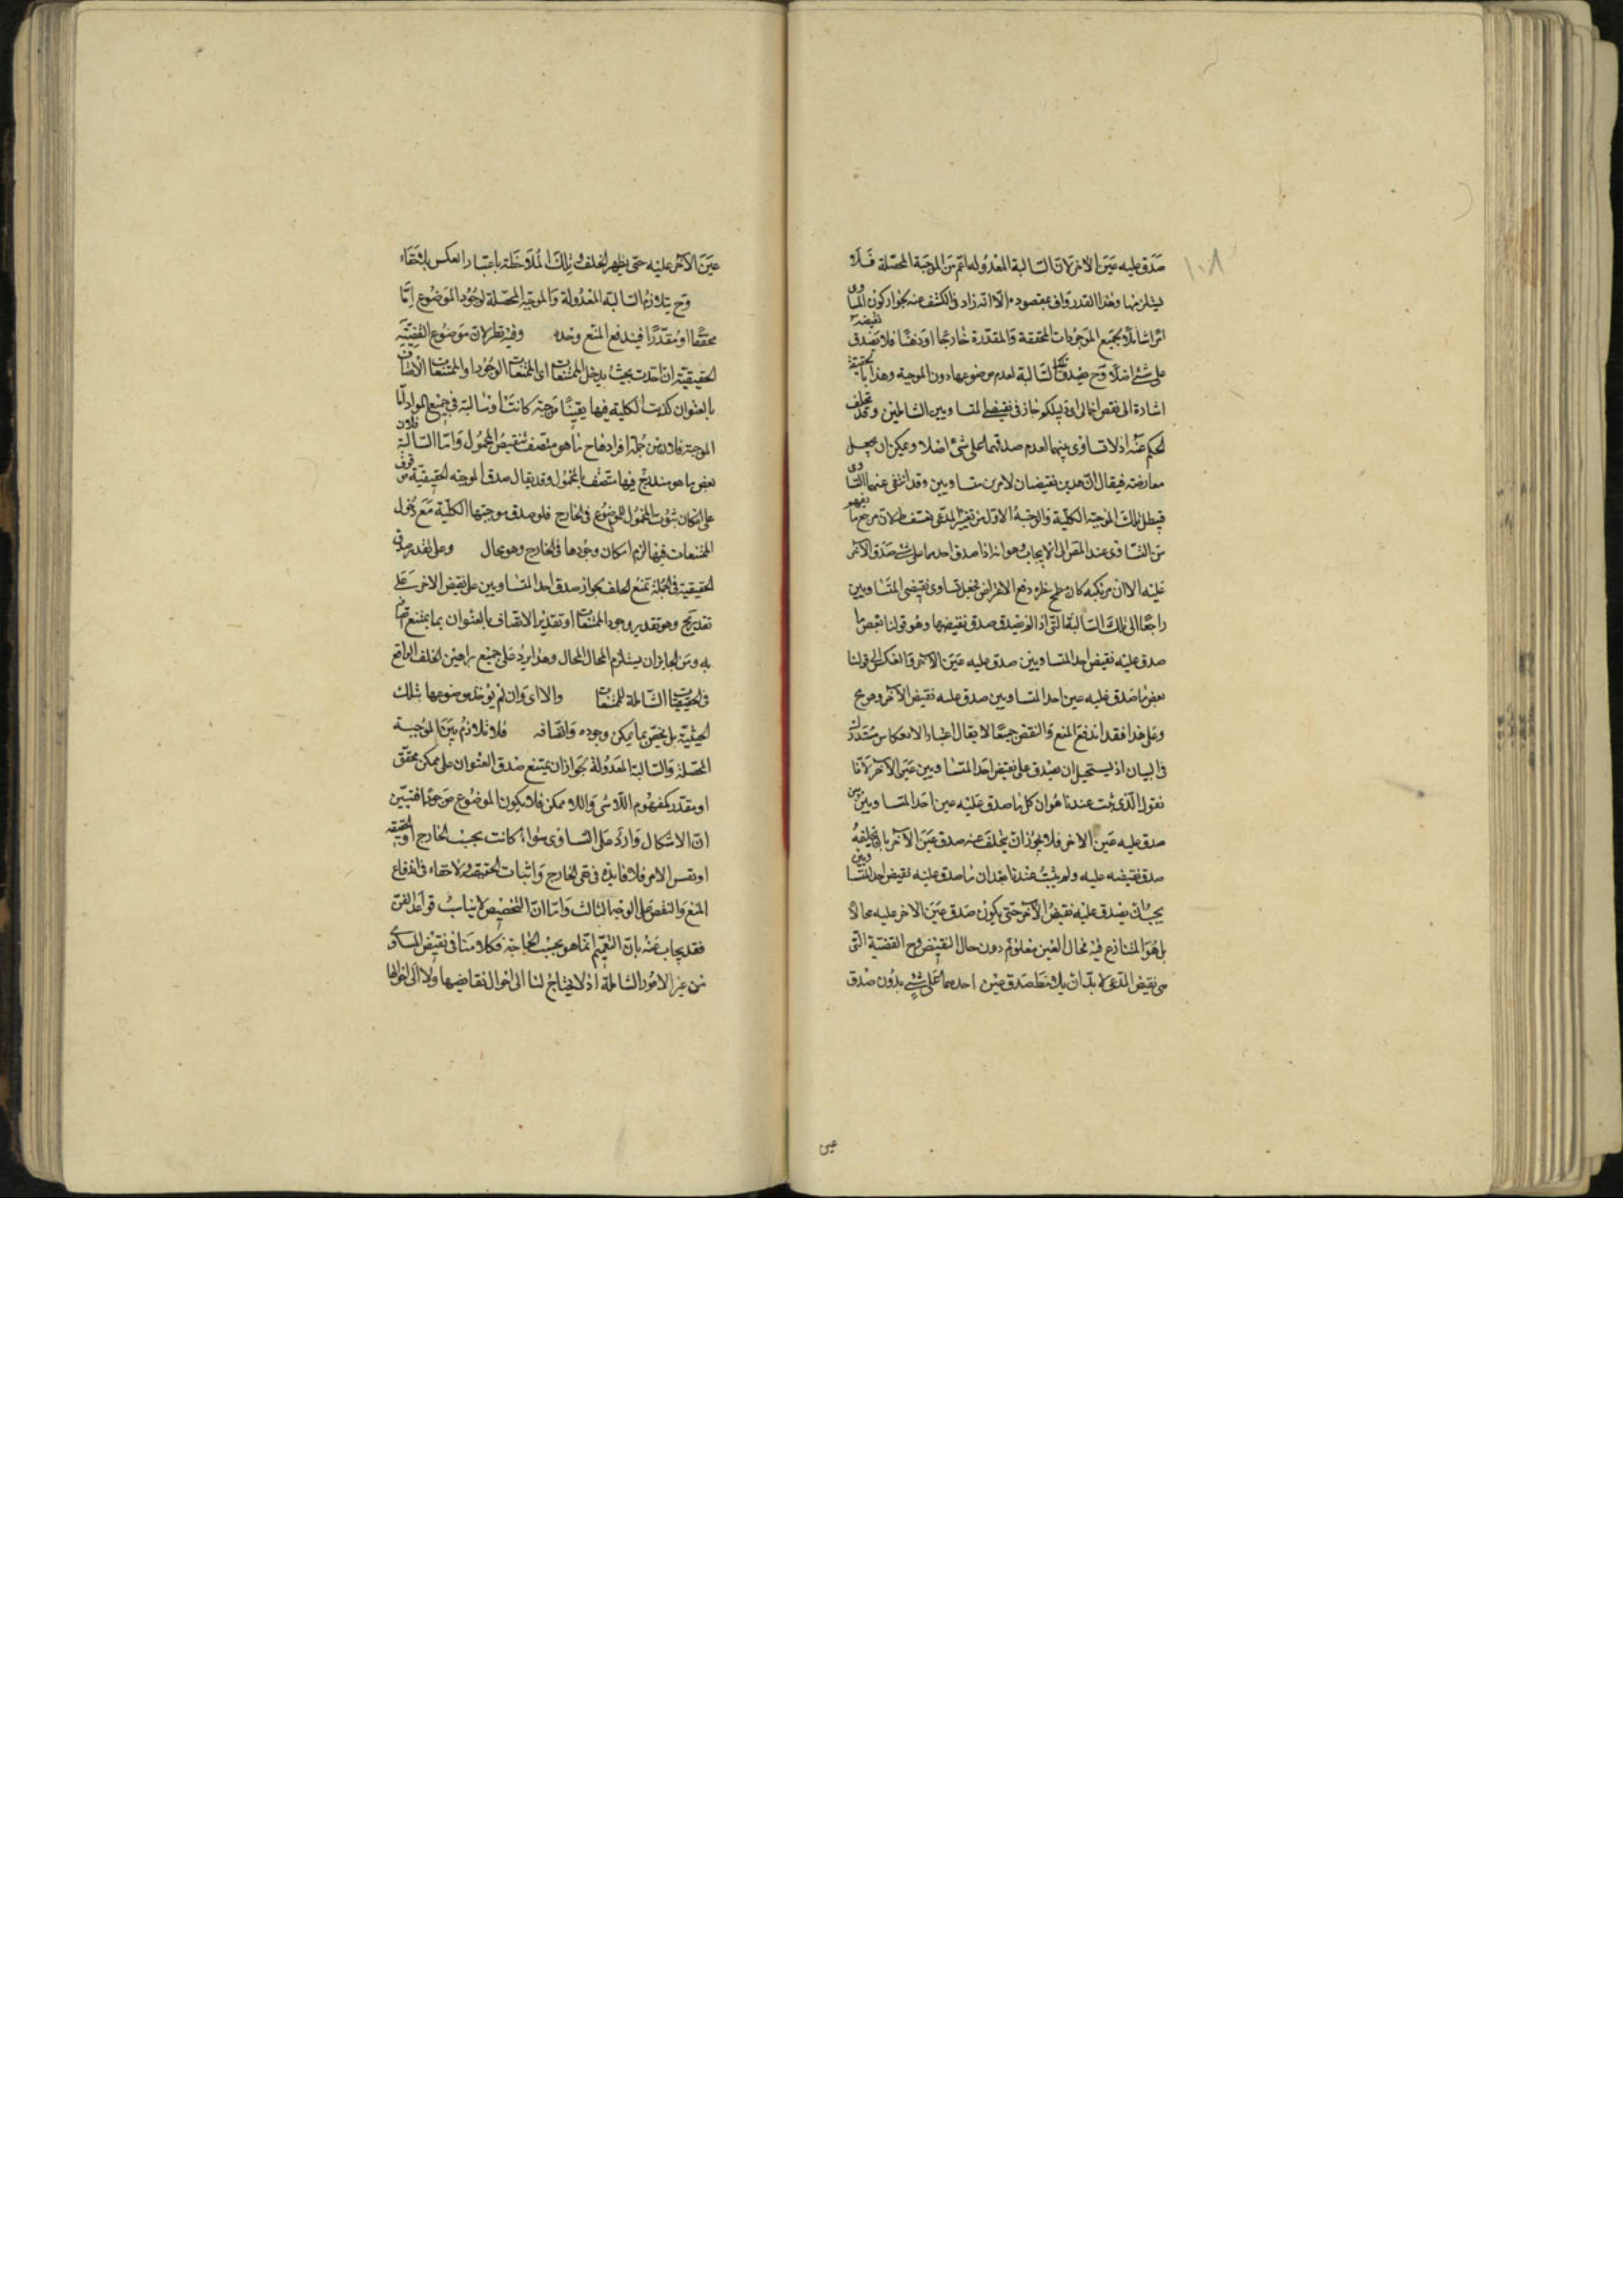 ١٠٨
صدق عليه عين الاخر لان السالبة المعدولة اعم من الموجبة المحصلة فلا
يستلزمها وهذا القدر واف بمقصوده الا انه زاد في الكشف عنه بجواز كون المساوى
امرا شاملا لجميع الموجودات المحققة والمقدرة خارجا او ذهنا فلا تصدق نقيضه
على شئ اصلا وح يصدق تلك السالبة لعدم موضوعها دون الموجبة وهذا بالحقيقة
اشارة الى نقض اجمالى اى دليلكم جاز في نقيضي المتساويين الشاملين وقد تخلف
الحكم عنه اذ لا تساوى بينهما لعدم صدقهما على شئ اصلا ويمكن ان يجعل
معارضة فيقال ان هذين نقيضان لامرين متساويين وقد انتفى عنهما التساوى
فيبطل تلك الموجبة الكلية والوجه الاول من تغيير المدعى تعسف لان مرجع ما يفهم
من التساوى عند المص الى الايجاب وهو انه اذا صدق احدهما على شئ صدق الآخر
عليه الا ان مرتكبه كان مطمح نظره دفع الاعتراض فجعل تساوى نقيضى المتساويين
راجعا الى تلك السالبة التى اذا لم يصدق صدق نقيضها وهو قولنا بعض ما
صدق عليه نقيض احد المتساويين صدق عليه عين الآخر وانعكس الى قولنا
بعض ما صدق عليه عين احد المتساويين صدق عليه نقيض الآخر وهو مح
وعلى هذا فقد اندفع المنع والنقض جميعا لا يقال اعتبار الانعكاس مستدرك
في البيان اذ يستحيل ان يصدق على نقيض احد المتساويين عين الآخر لانا
نقول الذى ثبت عندنا هو ان كل ما صدق عليه عين احد المتساويين
صدق عليه عين الاخر فلا يجوز ان يتخلف عنه صدق عين الآخر بان يخلفه
صدق نقيضه عليه ولم يثبت عندنا بعد ان ما صدق عليه نقيض احد المتساويين
يجب ان يصدق عليه نقيض الآخر حتى يكون صدق عين الاخر عليه محالا
بل هو المتنازع فيه فحال العين معلوم دون حال النقيض وح القضية التى
هى نقيض المدعى لا بد ان يلاحظ صدق عين احدهما على شئ بدون صدق
عين
عين الآخر عليه حتى يظهر الخلف وتلك الملاحظة باعتبار انعكس
وح يتلازم السالبة المعدولة والموجبة المحصلة لوجود الموضوع اما
محققا او مقدرا فيندفع المنع وحده وفيه نظر لان موضوع القضية
الحقيقية ان اخذت بحيث يدخل الممتنعات اى الممتنعات الوجود او الممتنعات الاتصاف
بالعنوان كذبت الكلية فيها يقينا موجبة كانت او سالبة في جميع المواد اما
الموجبة فلان من جملة افرادها ح ما هو متصف بنقيض المحمول واما السالبة فلان
بعض ما هو مندرج فيها متصف بالمحمول وقد يقال صدق الموجبة الحقيقية موقوف
على امكان ثبوت المحمول للموضوع في الخارج فلو صدق موجبتها الكلية مع دخول
الممتنعات فيها لزم امكان وجودها في الخارج وهو محال وعلى تقدير صدق
الحقيقية في الجملة نمنع الخلف لجواز صدق احد المتساويين على نقيض الاخر على
تقدير مح وهو تقدير وجود الممتنعات او تقدير الاتصاف بالعنوان بما يمتنع اتصافه
به ومن الجايز ان يستلزم المحال المحال وهذا يرد على جميع براهين الخلف الواقع
في الحقيقيات الشاملة للممتنعات والا اى وان لم يؤخذ موضوعها بتلك
الحيثية بل يختص بما يمكن وجوده واتصافه فلا تلازم بين الموجبة
المحصلة والسالبة المعدولة لجواز ان يمتنع صدق العنوان على ممكن محقق
او مقدر كمفهوم اللاشئ واللا ممكن فلا يكون الموضوع موجودا فتبين
ان الاشكال وارد على التساوى سواء كانت بحسب الخارج او الحقيقة
او نفس الامر فلا فايدة في نفى الخارج واثبات الحقيقة ولا خفاء في اندفاع
المنع والنقض على الوجه الثالث واما ان التخصيص لا يناسب قواعد الفن
فقد يجاب عنه بان التعميم انما هو بحسب الحاجة وكلامنا في نقيض المساوى
من غير الامور الشاملة اذ لا يحتاج لنا الى احوال نقايضها ولا الى احوالها